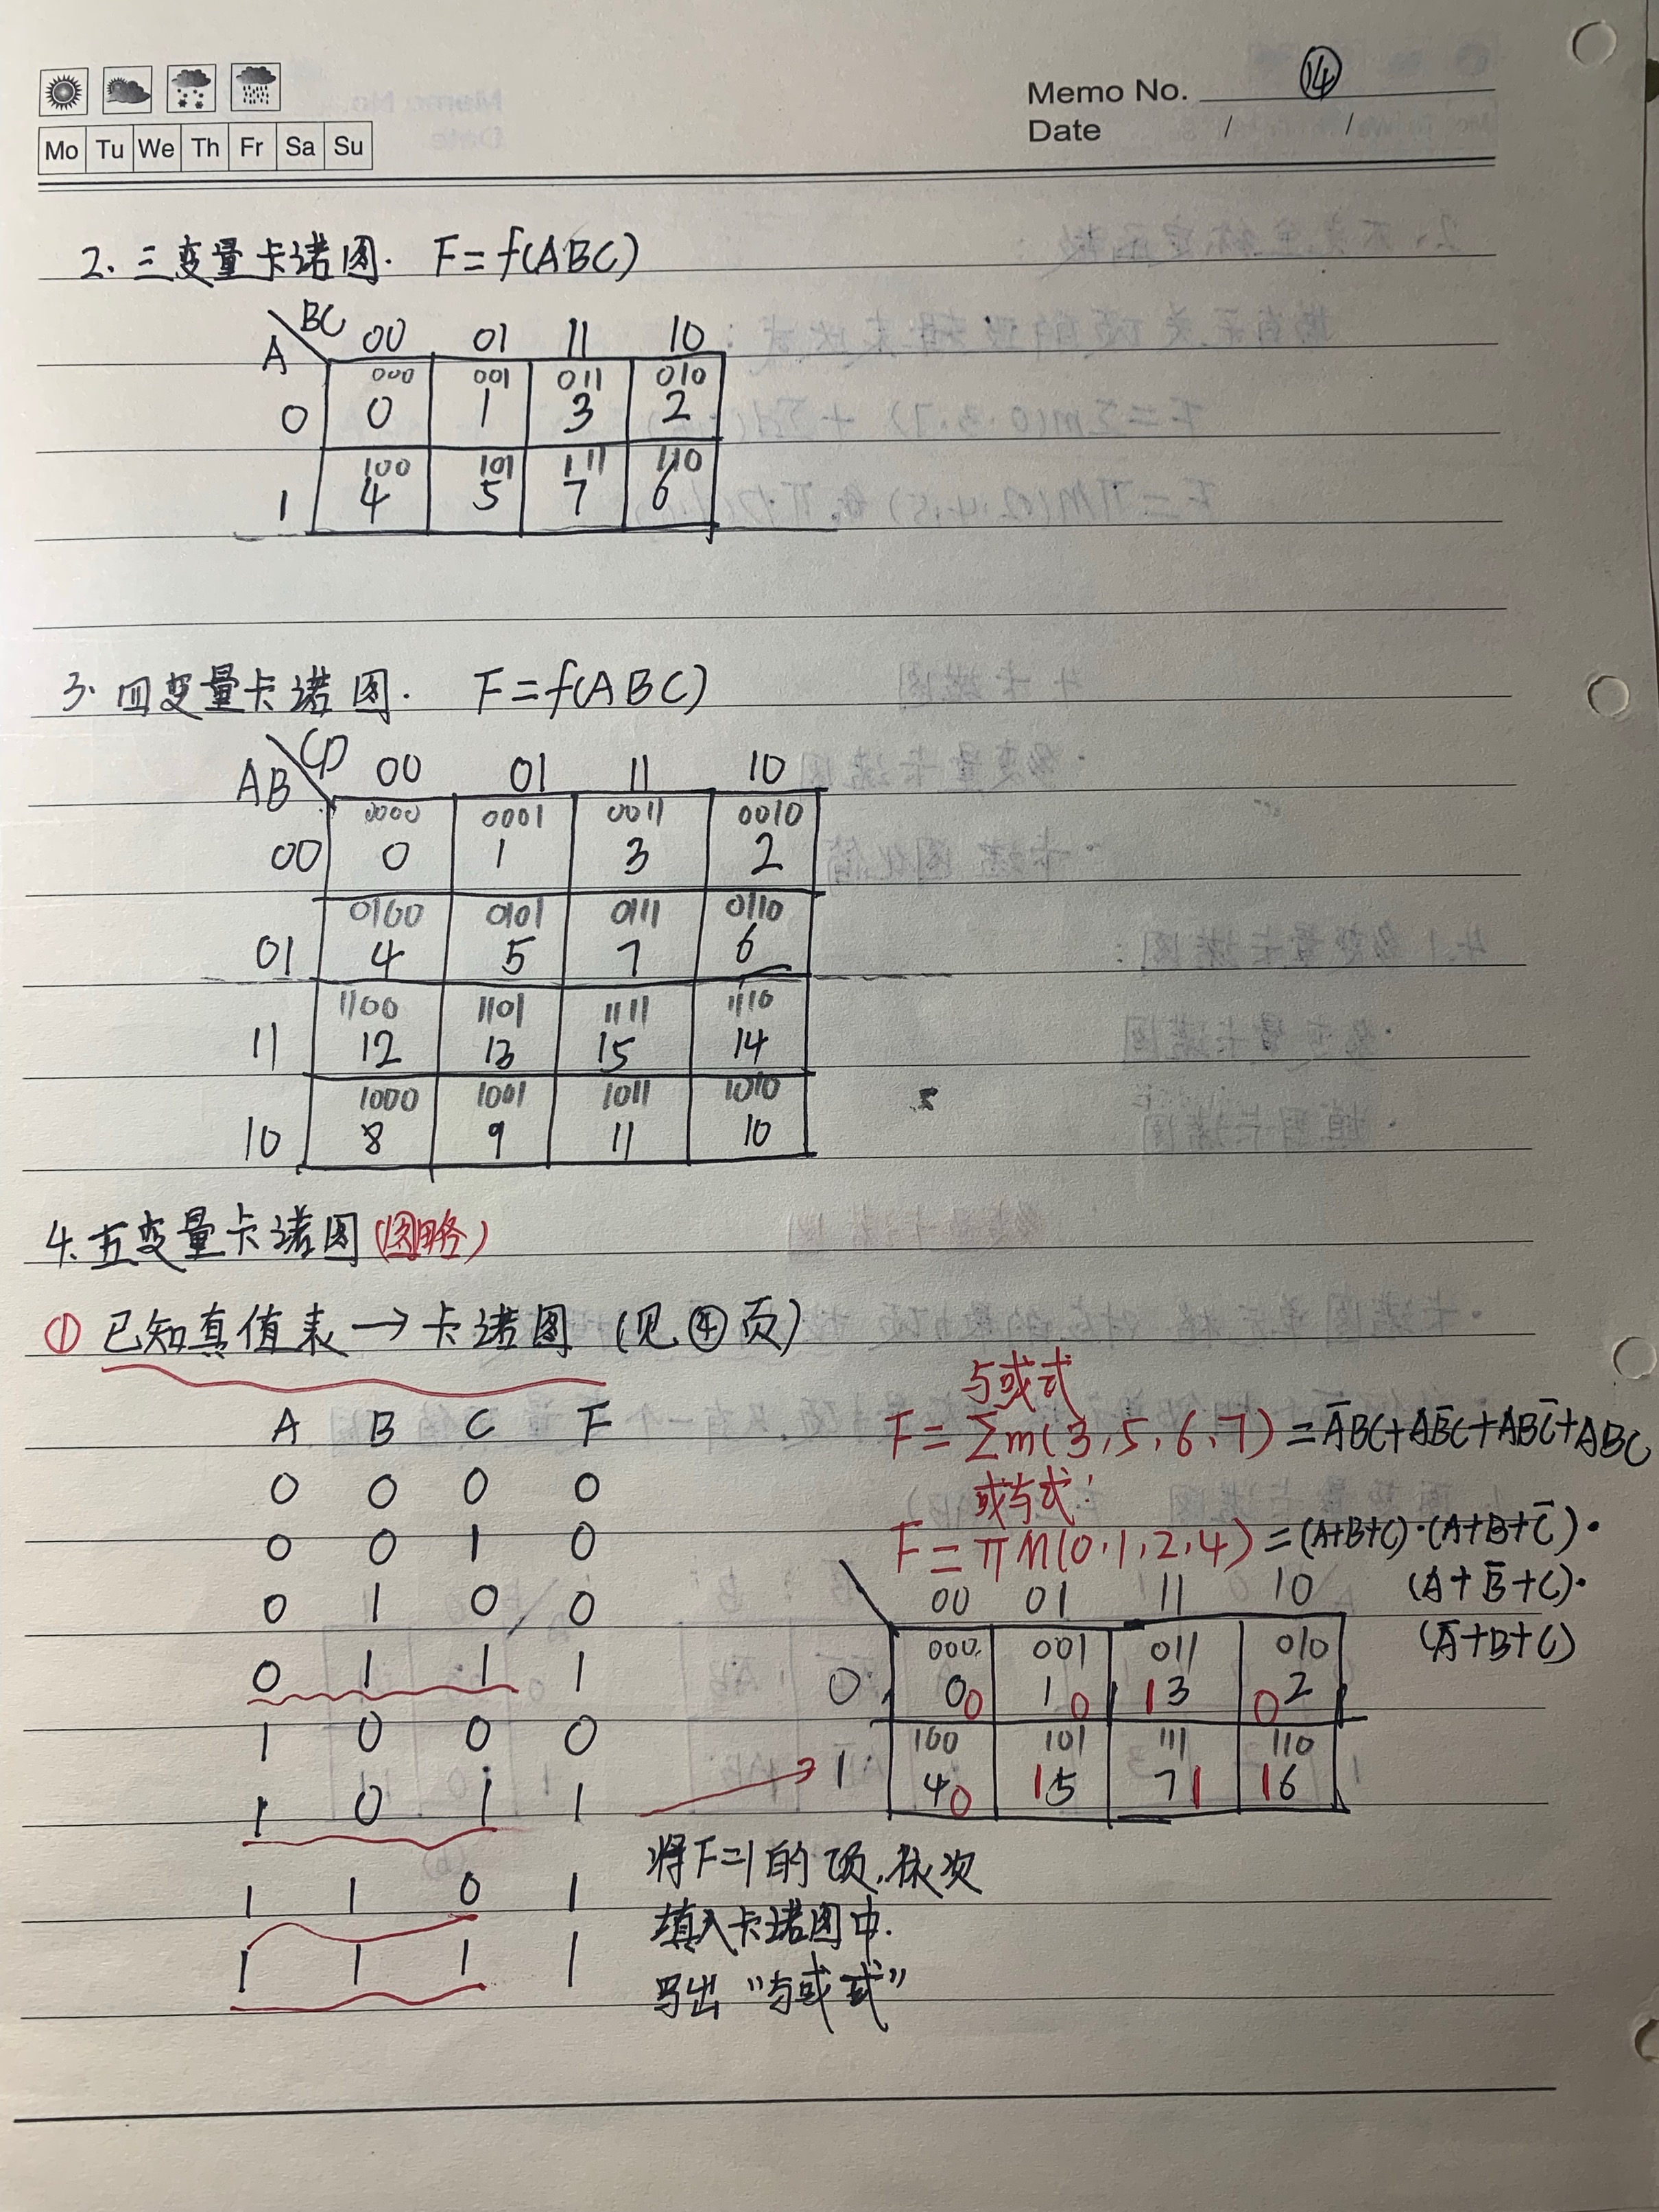 Memo No. ⑭
Date / /
Mo Tu We Th Fr Sa Su
2. 三变量卡诺图. F=f(ABC)
A BC 00 01 11 10
000 001 011 010
0 0 1 3 2
100 101 111 110
1 4 5 7 6
3. 四变量卡诺图. F=f(ABC)
AB CD 00 01 11 10
0000 0001 0011 0010
00 0 1 3 2
0100 0101 0111 0110
01 4 5 7 6
1100 1101 1111 1110
11 12 13 15 14
1000 1001 1011 1010
10 8 9 11 10
4. 五变量卡诺图(图略)
① 已知真值表→卡诺图 (见④页)
A B C F
0 0 0 0
0 0 1 0
0 1 0 0
0 1 1 1
1 0 0 0
1 0 1 1
1 1 0 1
1 1 1 1
与或式
F=Σm(3,5,6,7)=A̅BC+AB̅C+ABC̅+ABC
或与式
F=πM(0,1,2,4)=(A+B+C)·(A+B+C̅)·
(A+B̅+C)·
(A̅+B+C)
00 01 11 10
000 001 011 010
0 0 0 1 0 1 3 0 2
100 101 111 110
1 4 0 1 5 7 1 1 6
将F=1的项,依次
填入卡诺图中.
写出"与或式"